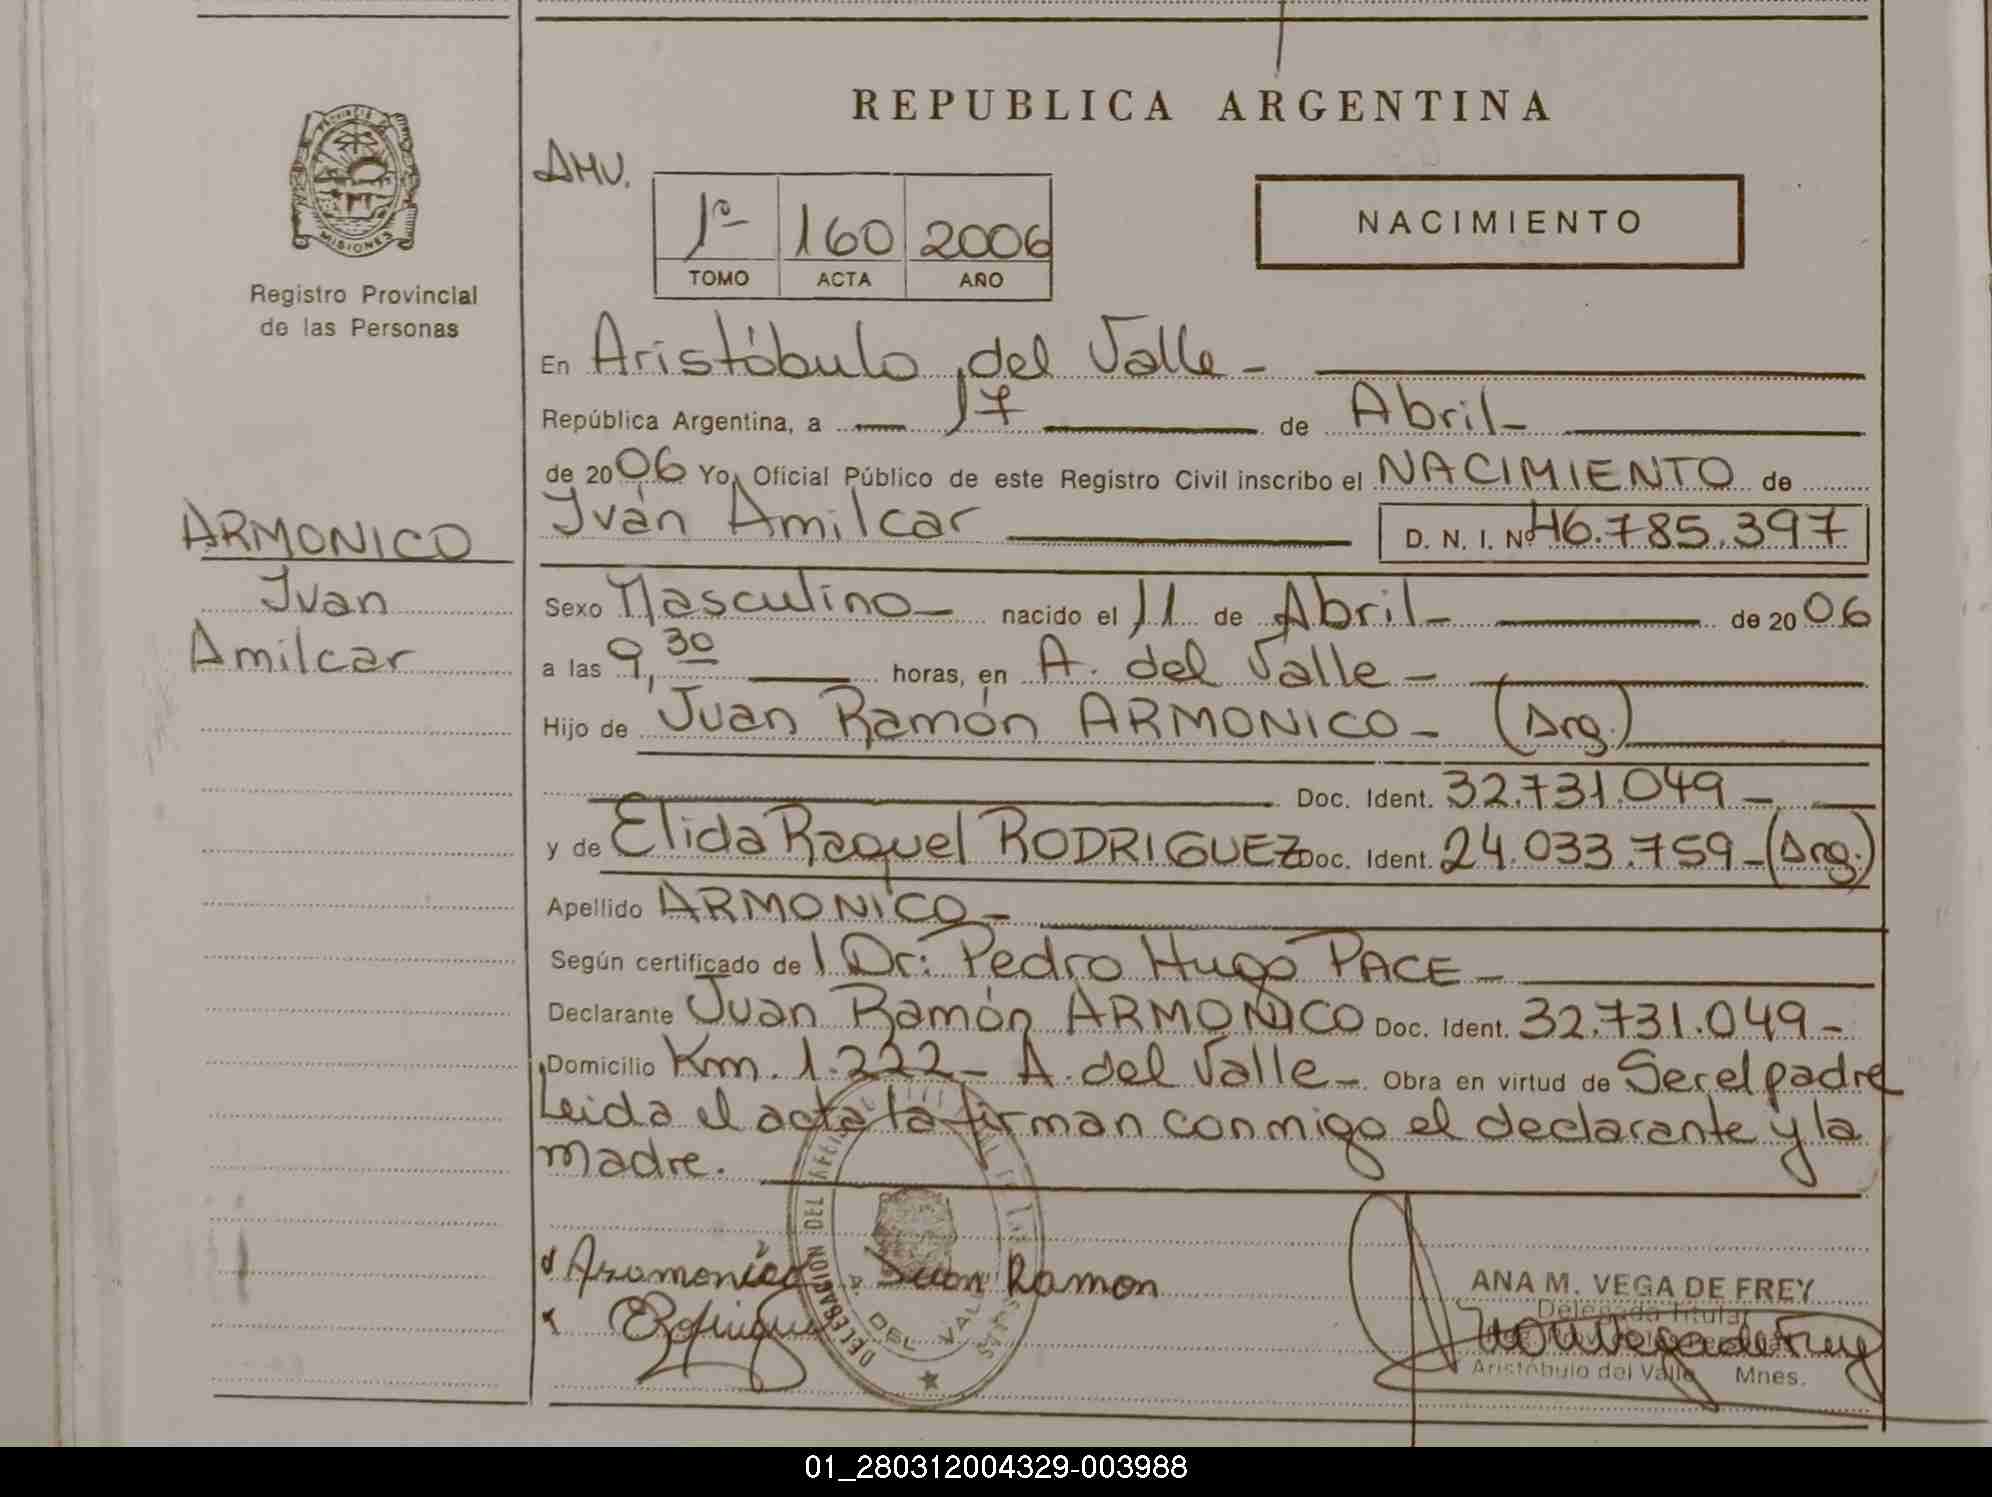 REPUBLICA ARGENTINA
PROVINCIA DE
MISIONES
Registro Provincial
de las Personas
AMV.
1º 160 2006
TOMO ACTA AÑO
NACIMIENTO
En Aristóbulo del Valle -
República Argentina, a 17 de Abril -
de 2006 Yo, Oficial Público de este Registro Civil inscribo el NACIMIENTO de
Iván Amilcar D. N. I. Nº 46.785.397
ARMONICO
Ivan
Amilcar
Sexo Masculino - nacido el 11 de Abril - de 2006
a las 9,30 horas, en A. del Valle -
Hijo de Juan Ramón ARMONICO - (Arg.)
Doc. Ident. 32.731.049 -
y de Elida Raquel RODRIGUEZ Doc. Ident. 24.033.759 - (Arg.)
Apellido ARMONICO -
Según certificado de l Dr: Pedro Hugo PACE -
Declarante Juan Ramón ARMONICO Doc. Ident. 32.731.049 -
Domicilio Km. 1.222 - A. del Valle - Obra en virtud de Ser el padre
Leida el acta la firman conmigo el declarante y la
madre.
Aramonico Juan Ramon
DELEGACION DEL
DEL VALLE
ANA M. VEGA DE FREY
Delegada Titular
Aristóbulo del Valle Mnes.
01_280312004329-003988